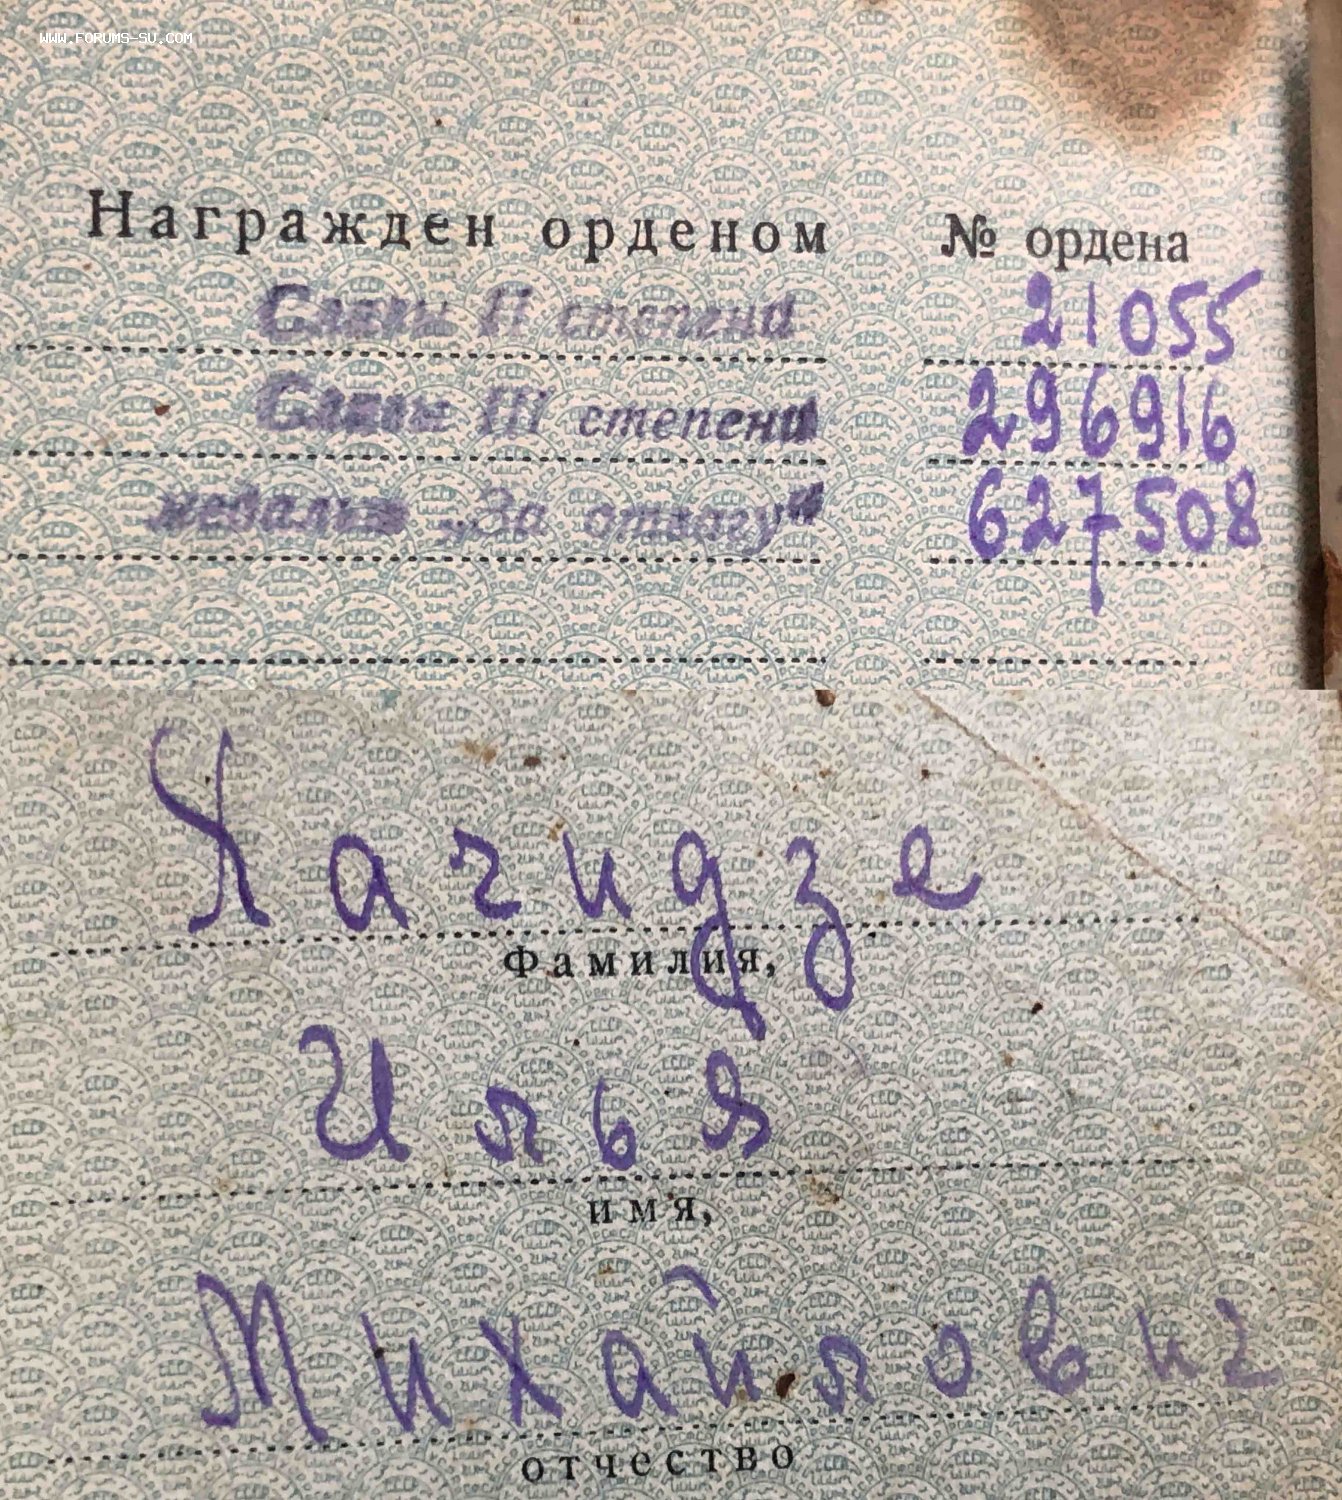 WWW.FORUMS-SU.COM
Награжден орденом № ордена
Славы II степени 21055
Славы III степени 296916
медалью „За отвагу“ 627508
Хачидзе
Фамилия,
Илья
имя,
Михайлович
отчество